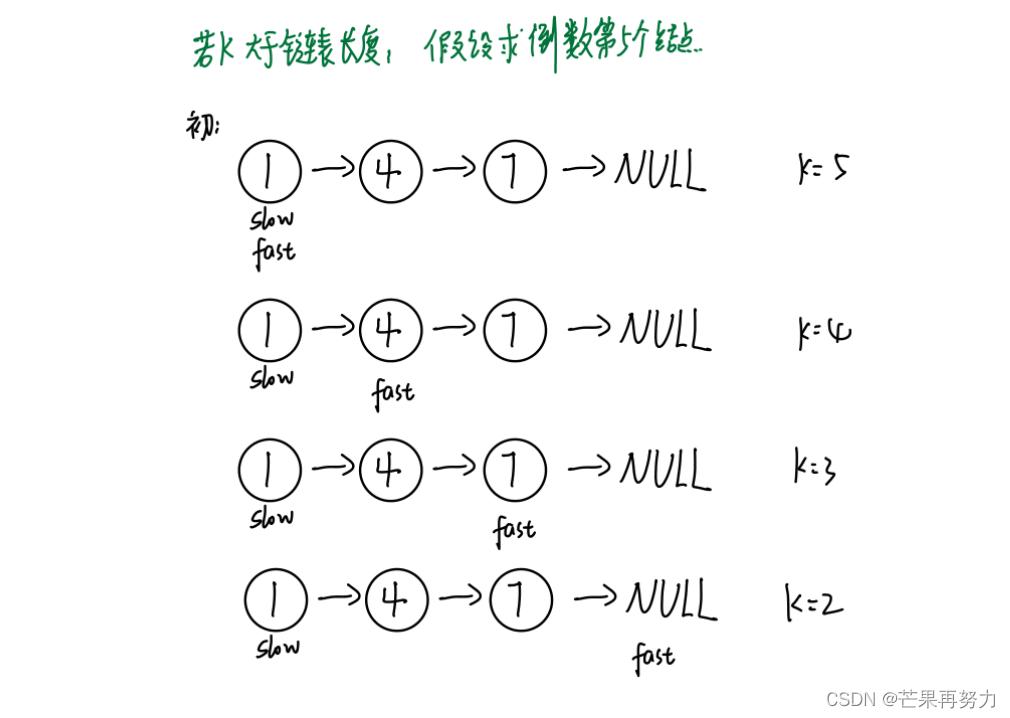 若K大于链表长度,假设求倒数第5个结点..
初:
1 → 4 → 7 → NULL K=5
slow
fast
1 → 4 → 7 → NULL K=4
slow fast
1 → 4 → 7 → NULL K=3
slow fast
1 → 4 → 7 → NULL K=2
slow fast
CSDN @芒果再努力